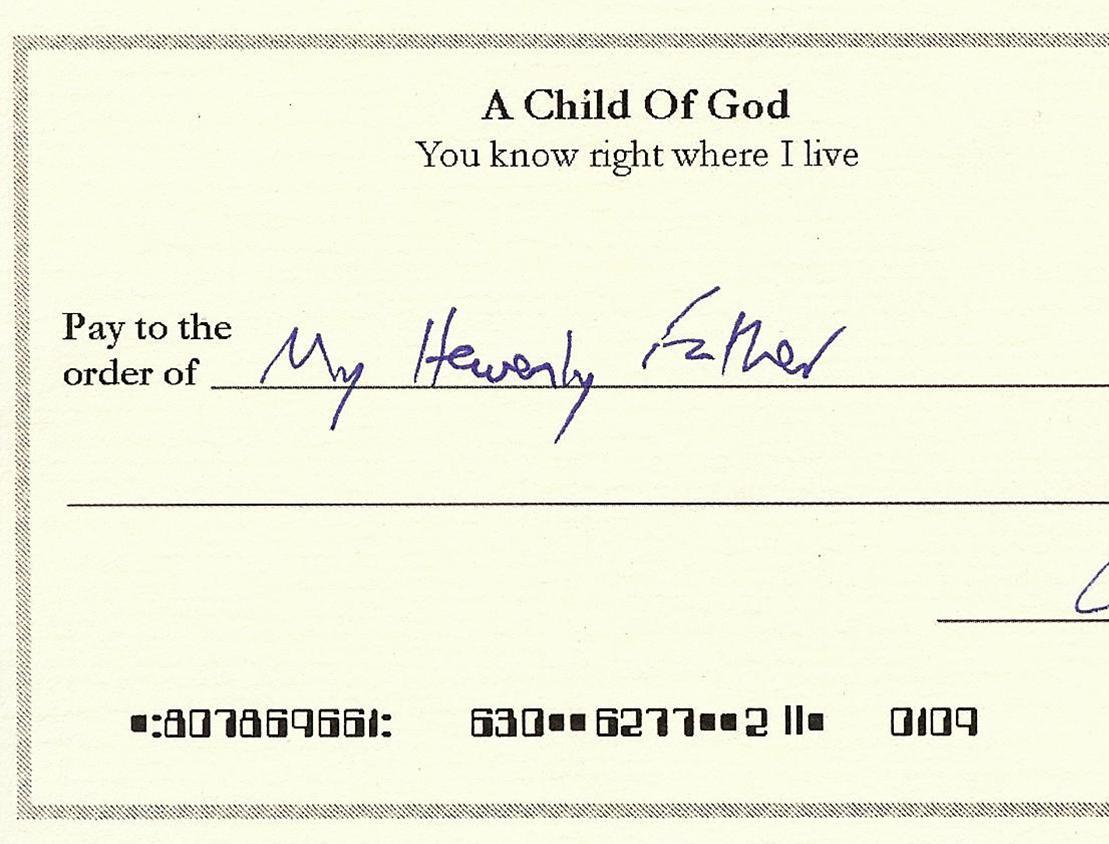 A Child Of God
You know right where I live
Pay to the
order of My Heavenly Father
⑆807869661⑆ 630⑉6277⑉2⑈ 0109